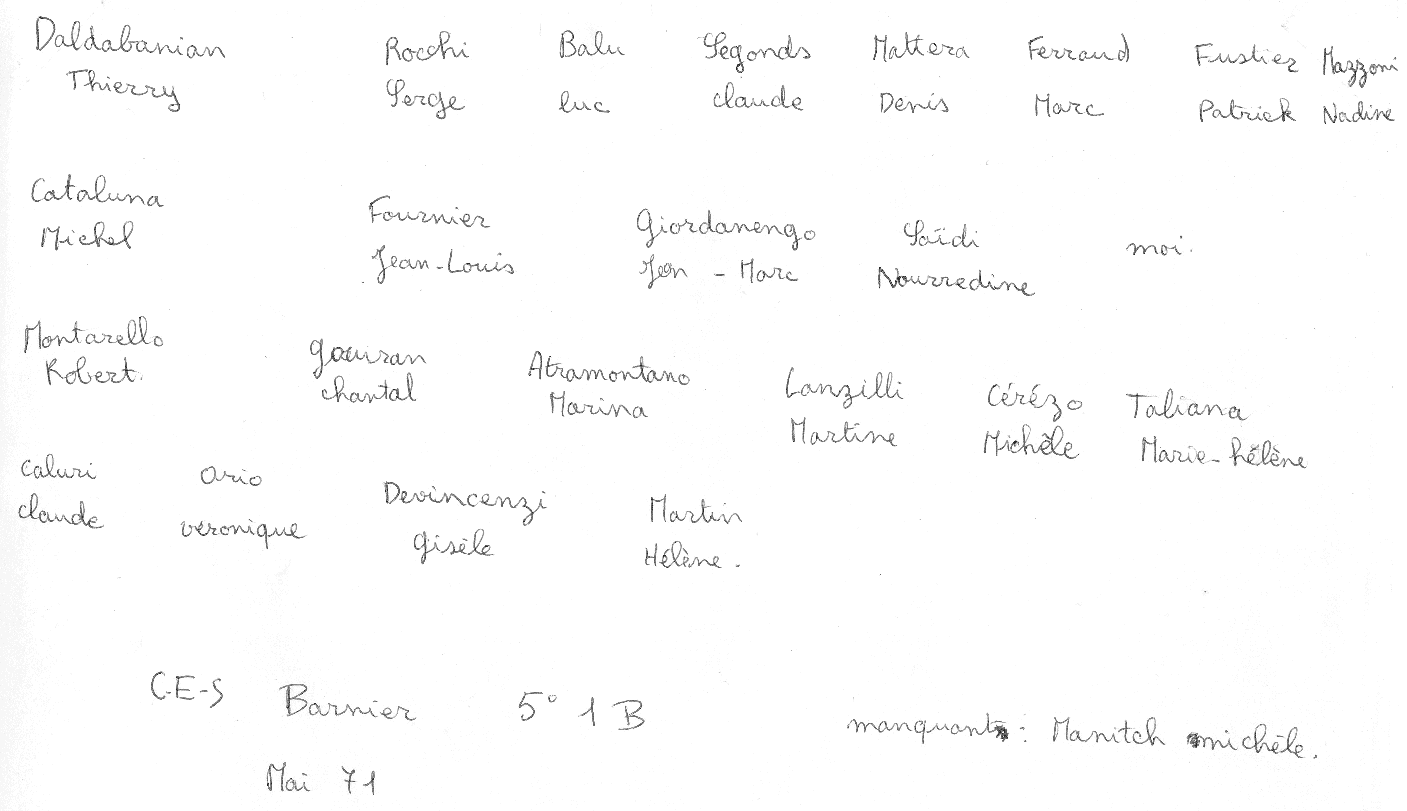 Daldabanian Rocchi Balu Segonds Mattera Ferraud Fustier Mazzoni
Thierry Serge luc claude Denis Marc Patrick Nadine
Cataluna Fournier Giordanengo Saïdi moi.
Michel Jean-Louis Jean - Marc Nourredine
Montarello Atramontano Lanzilli Cérézo Taliana
Robert. chantal Marina Martine Michèle Marie-hélène
Caluri Orio Devincenzi Martin
claude véronique Gisèle Hélène.
C-E-S Barnier 5° 1 B manquant : Manitch michèle.
Mai 71